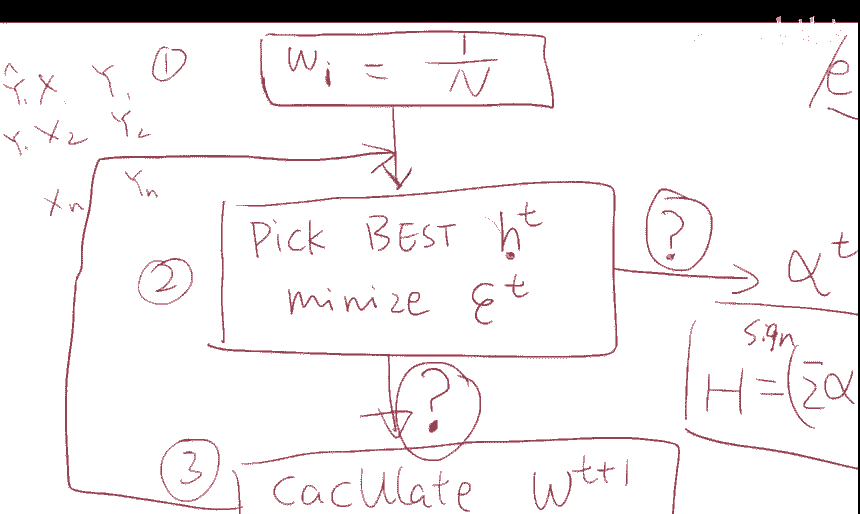 ① w_i = 1/N
Ŷ₁ X₁ Y₁
Y₂ X₂ Y₂
Xn Yn
② Pick BEST h^t
minize ε^t
?
α^t
sign
H = (Σα
?
③ cacUlate w^{t+1}